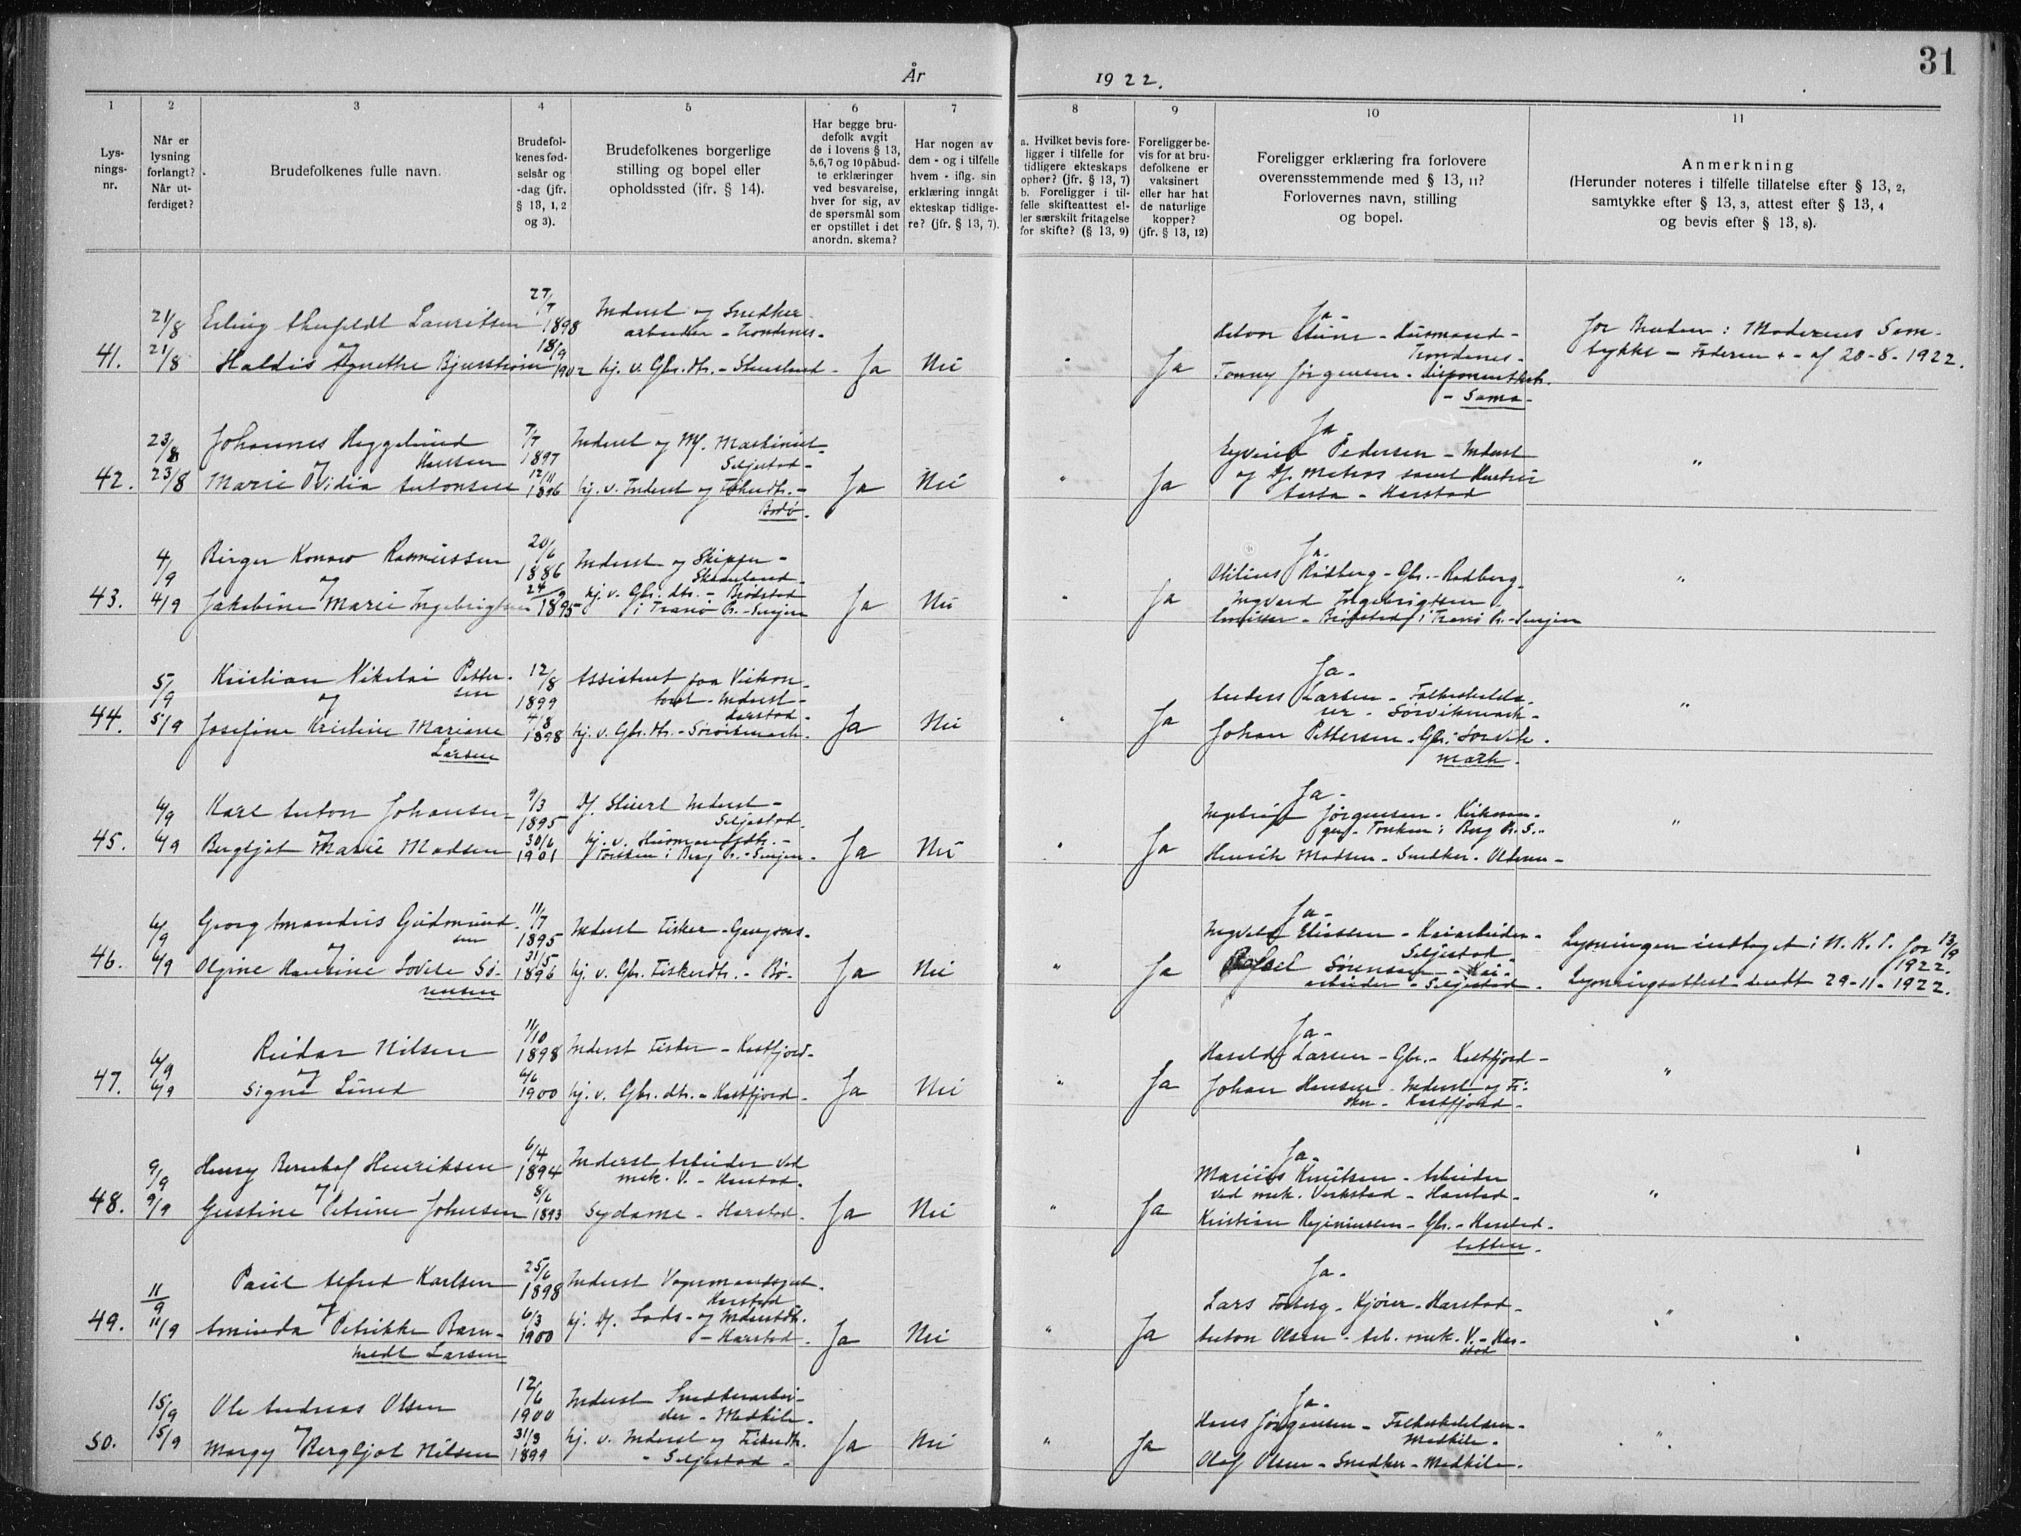 31
År 1922.
1 2 3 4 5 6 7 8 9 10 11
Lys-
nings-
nr.
Når er
lysning
forlangt?
Når ut-
ferdiget?
Brudefolkenes fulle navn.
Brudefol-
kenes fød-
selsår og
-dag (jfr.
§ 13, 1, 2
og 3).
Brudefolkenes borgerlige
stilling og bopel eller
opholdssted (jfr. § 14).
Har begge bru-
defolk avgit
de i lovens § 13,
5,6,7 og 10 påbud-
te erklæringer
ved besvarelse,
hver for sig, av
de spørsmål som
er opstillet i det
anordn. skema?
Har nogen av
dem - og i tilfelle
hvem - iflg. sin
erklæring inngåt
ekteskap tidlige-
re? (jfr. § 13, 7).
a. Hvilket bevis fore-
ligger i tilfelle for
tidligere ekteskaps
ophør? (jfr. § 13, 7)
b. Foreligger i til-
felle skifteattest el-
ler særskilt fritagelse
for skifte? (§ 13, 9)
Foreligger be-
vis for at bru-
defolkene er
vaksinert
eller har hat
de naturlige
kopper?
(jfr. § 13, 12)
Foreligger erklæring fra forlovere
overensstemmende med § 13, 11?
Forlovernes navn, stilling
og bopel.
Anmerkning
(Herunder noteres i tilfelle tillatelse efter § 13, 2,
samtykke efter § 13, 3, attest efter § 13, 4
og bevis efter § 13, 8).
41.
21/8
21/8
Erling Lauritsen
og
Haldis Agnethe
27/7
1898
18/9
1902
Inderst og Snedker-
arbeider - Trondenes -
hj. v. Gbr. dtr. -
Ja
Nei
"
Ja
Ja -
Anton - Husmand -
Trondenes -
Tonny Jørgensen -
- Sama -
for Bruden: Moderens Sam-
tykke - Faderen + - af 20-8-1922.
42.
23/8
23/8
Johannes Heggelund
og Hansen
Marie Ovidia Antonsen
7/7
1897
12/11
1896
Inderst og Mf. Maskinist -
Seljestad -
hj. v. Inderst og Fiskerdtr. -
Bodø.
Ja
Nei
"
Ja
Ja -
Pedersen - Inderst
og Df. Matros samt Hustru
- Harstad
"
43.
4/9
4/9
Birger Konow Rasmussen
og
Jakobine Marie Ingebrigtsen
20/6
1886
24/9
1895
Inderst og Skipper -
hj. v. Gbr. dtr. - Brøstad
i Tranø P. - Senjen
Ja
Nei
"
Ja
Ja -
Otilius Rødberg - Gbr. - Rødberg -
Ingvard Ingebrigtsen
- Brøstad i Tranø P. - Senjen
"
44.
5/9
5/9
Kristian Nikolai Petter-
og sen
Josefine Kristine Mariane
Larsen
12/8
1899
4/8
1898
Assistent paa Veikon-
toret - Inderst -
Harstad -
hj. v. Gbr. dtr. - Sørvikmark.
Ja
Nei
"
Ja
Ja -
Anders Larsen -
- Sørvikmark -
Johan Pettersen - Gbr. Sørvik-
mark.
"
45.
6/9
6/9
Karl Anton Johansen
og
Bergljot Marie Madsen
9/3
1895
30/6
1901
Df. Stuert Inderst -
Seljestad.
hj. v. Husmandsdtr. -
Torsken i Berg P. - Senjen -
Ja
Nei
"
Ja
Ja -
Ingebrigt Jørgensen - Kirkesan-
ger - Torsken i Berg P. S. -
Henrik Madsen - Snedker -
"
46.
6/9
6/9
Georg Amandus Gudmund-
og sen
Olgine Hansine Lovise Sø-
rensen
11/7
1895
31/5
1896
Inderst Fisker - Gangsaas -
hj. v. Gbr. Fiskerdtr. - Bø -
Ja
Nei
"
Ja
Ja -
Ingvald Eliassen - Kaiarbeider -
Seljestad -
Sørensen - Kai-
arbeider - Seljestad -
Lysningen indtaget i N. K. T. for 13/9
1922.
Lysningsattest sendt 29-11-1922.
47.
6/9
6/9
Reidar Nilsen
og
Signe Lund
11/10
1898
6/6
1900
Inderst Fisker - Kastfjord -
hj. v. Gbr. dtr. - Kastfjord -
Ja
Nei
"
Ja
Ja -
Harald Larsen - Gbr. - Kastfjord -
Johan Hansen - Inderst og Fi-
sker - Kastfjord -
"
48.
9/9
9/9
Henry Bernhof Henriksen
og
Gustine Petrine Johnsen
6/4
1894
8/6
1893
Inderst Arbeider ved
mek. V. - Harstad.
Sydame - Harstad.
Ja
Nei
"
Ja
Ja -
Marius Knutsen - Arbeider
ved mek. Verkstad - Harstad -
Kristian Reginiussen - Gbr. - Harstad-
botten.
"
49.
11/9
11/9
Paul Alfred Karlsen
og
Aminda Petrikke Barn-
holdt Larsen
25/6
1898
6/3
1900
Inderst Vognmandsgut -
Harstad
hj. Df. Lods- og Inderstdtr.
- Harstad -
Ja
Nei
"
Ja
Ja -
Lars Forberg - Kjører - Harstad -
Anton Olsen - Arb. mek. V. - Har-
stad
"
50.
15/9
15/9
Ole Andreas Olsen
og
Margy Bergljot Nilsen
12/6
1900
31/3
1899
Inderst Snedkerarbei-
der - Medkila.
hj. v. Inderst og Fiskerdtr.
- Seljestad -
Ja
Nei
"
Ja
Ja -
Hans Jørgensen -
Medkila -
Olaf Olsen - Snedker - Medkila -
"